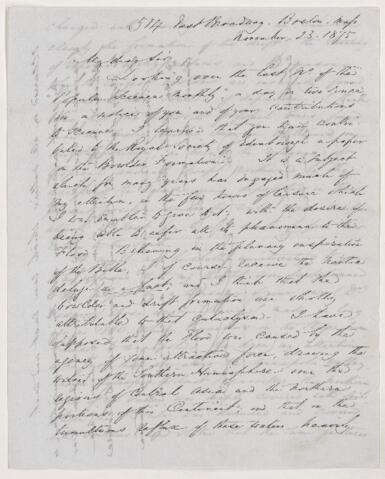 514 East Broadway, Boston, Mass
November 23. 1875
My dear Sir,
Looking over the last No of the
"Popular Science Monthly" a day or two since
in a notice of you and of your contributions
to Science, I learned that you had contri-
buted to the Royal Society of Edinburgh a paper
on the Boulder Formation. It is a subject
which for many years has engaged much of
my attention, in the few hours of leisure which
I am enabled to give to it; with the desire of
being able to refer all the phenomena to the
Flood. Believing in the plenary inspiration
of the Bible, I of course receive the
deluge as a fact; and I think that the
boulder and drift formation are
attributable to that Cataclysm. I have
supposed that the Flood was caused by the
agency of some attractive force, drawing the
waters of the Southern Hemisphere over the
regions of Central Asia and the northern
portions of this Continent; and that, in the
tumultuous reflux of these waters, heavily